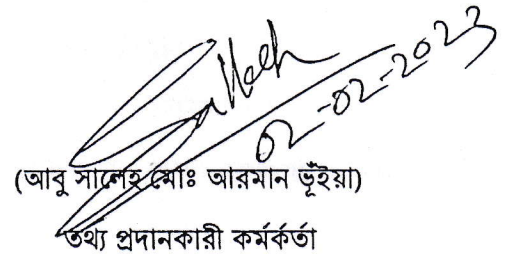 Saleh
02-02-2023
(আবু সালেহ মোঃ আরমান ভূঁইয়া)
তথ্য প্রদানকারী কর্মকর্তা